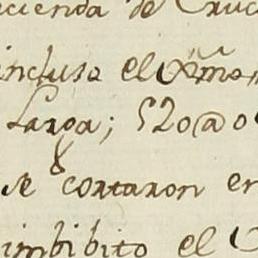 cienda de Cruc
incluso el Xmo
Laroa; 520@0
8
se cortaron en
imbibito el